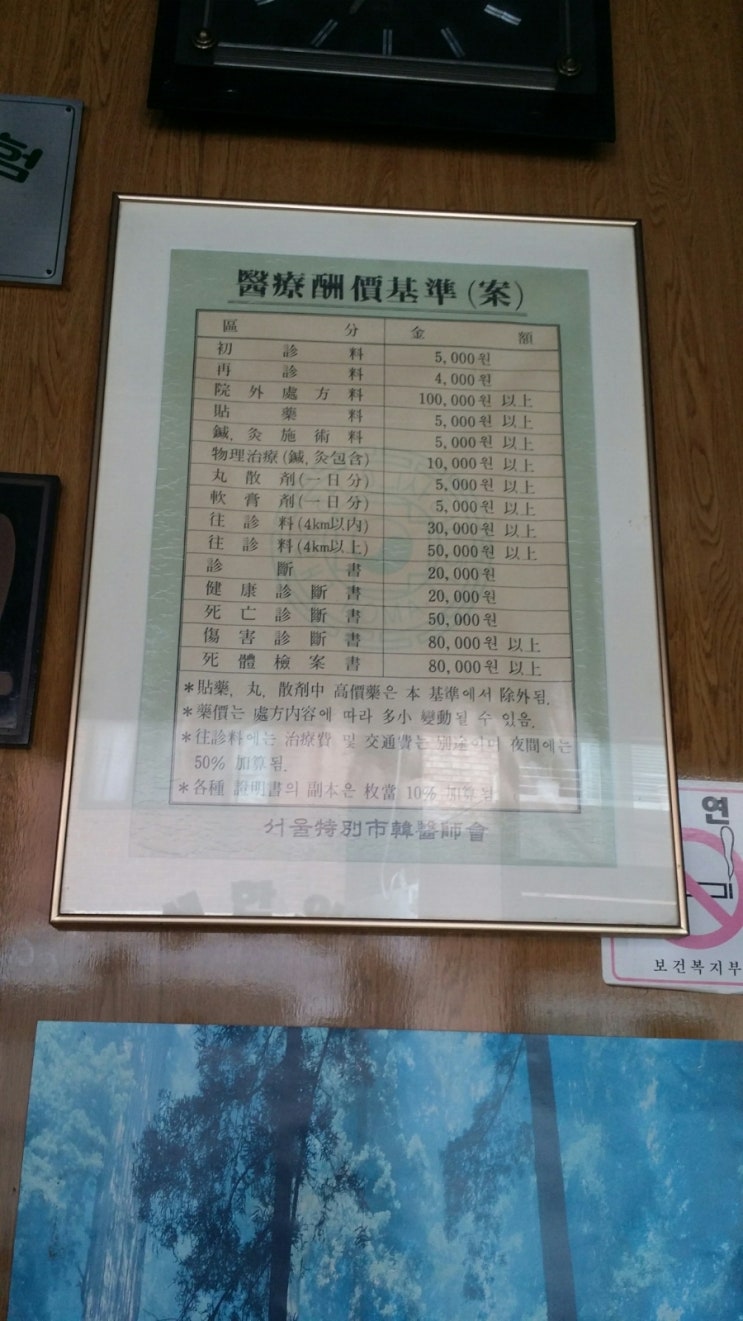 험
醫療酬價基準(案)
區分 金額
初診料 5,000원
再診料 4,000원
院外處方料 100,000원 以上
貼藥料 5,000원 以上
鍼, 灸施術料 5,000원 以上
物理治療(鍼, 灸包含) 10,000원 以上
丸散剤(一日分) 5,000원 以上
軟膏剤(一日分) 5,000원 以上
往診料(4km以內) 30,000원 以上
往診料(4km以上) 50,000원 以上
診斷書 20,000원
健康診斷書 20,000원
死亡診斷書 50,000원
傷害診斷書 80,000원 以上
死體檢案書 80,000원 以上
*貼藥, 丸, 散剤中 高價藥은 本 基準에서 除外됨.
*藥價는 處方內容에 따라 多小 變動될 수 있음.
*往診料에는 治療費 및 交通費는 別途이며 夜間에는
50% 加算됨.
*各種 證明書의 副本은 枚當 10% 加算됨
서울特別市韓醫師會
연
보건복지부